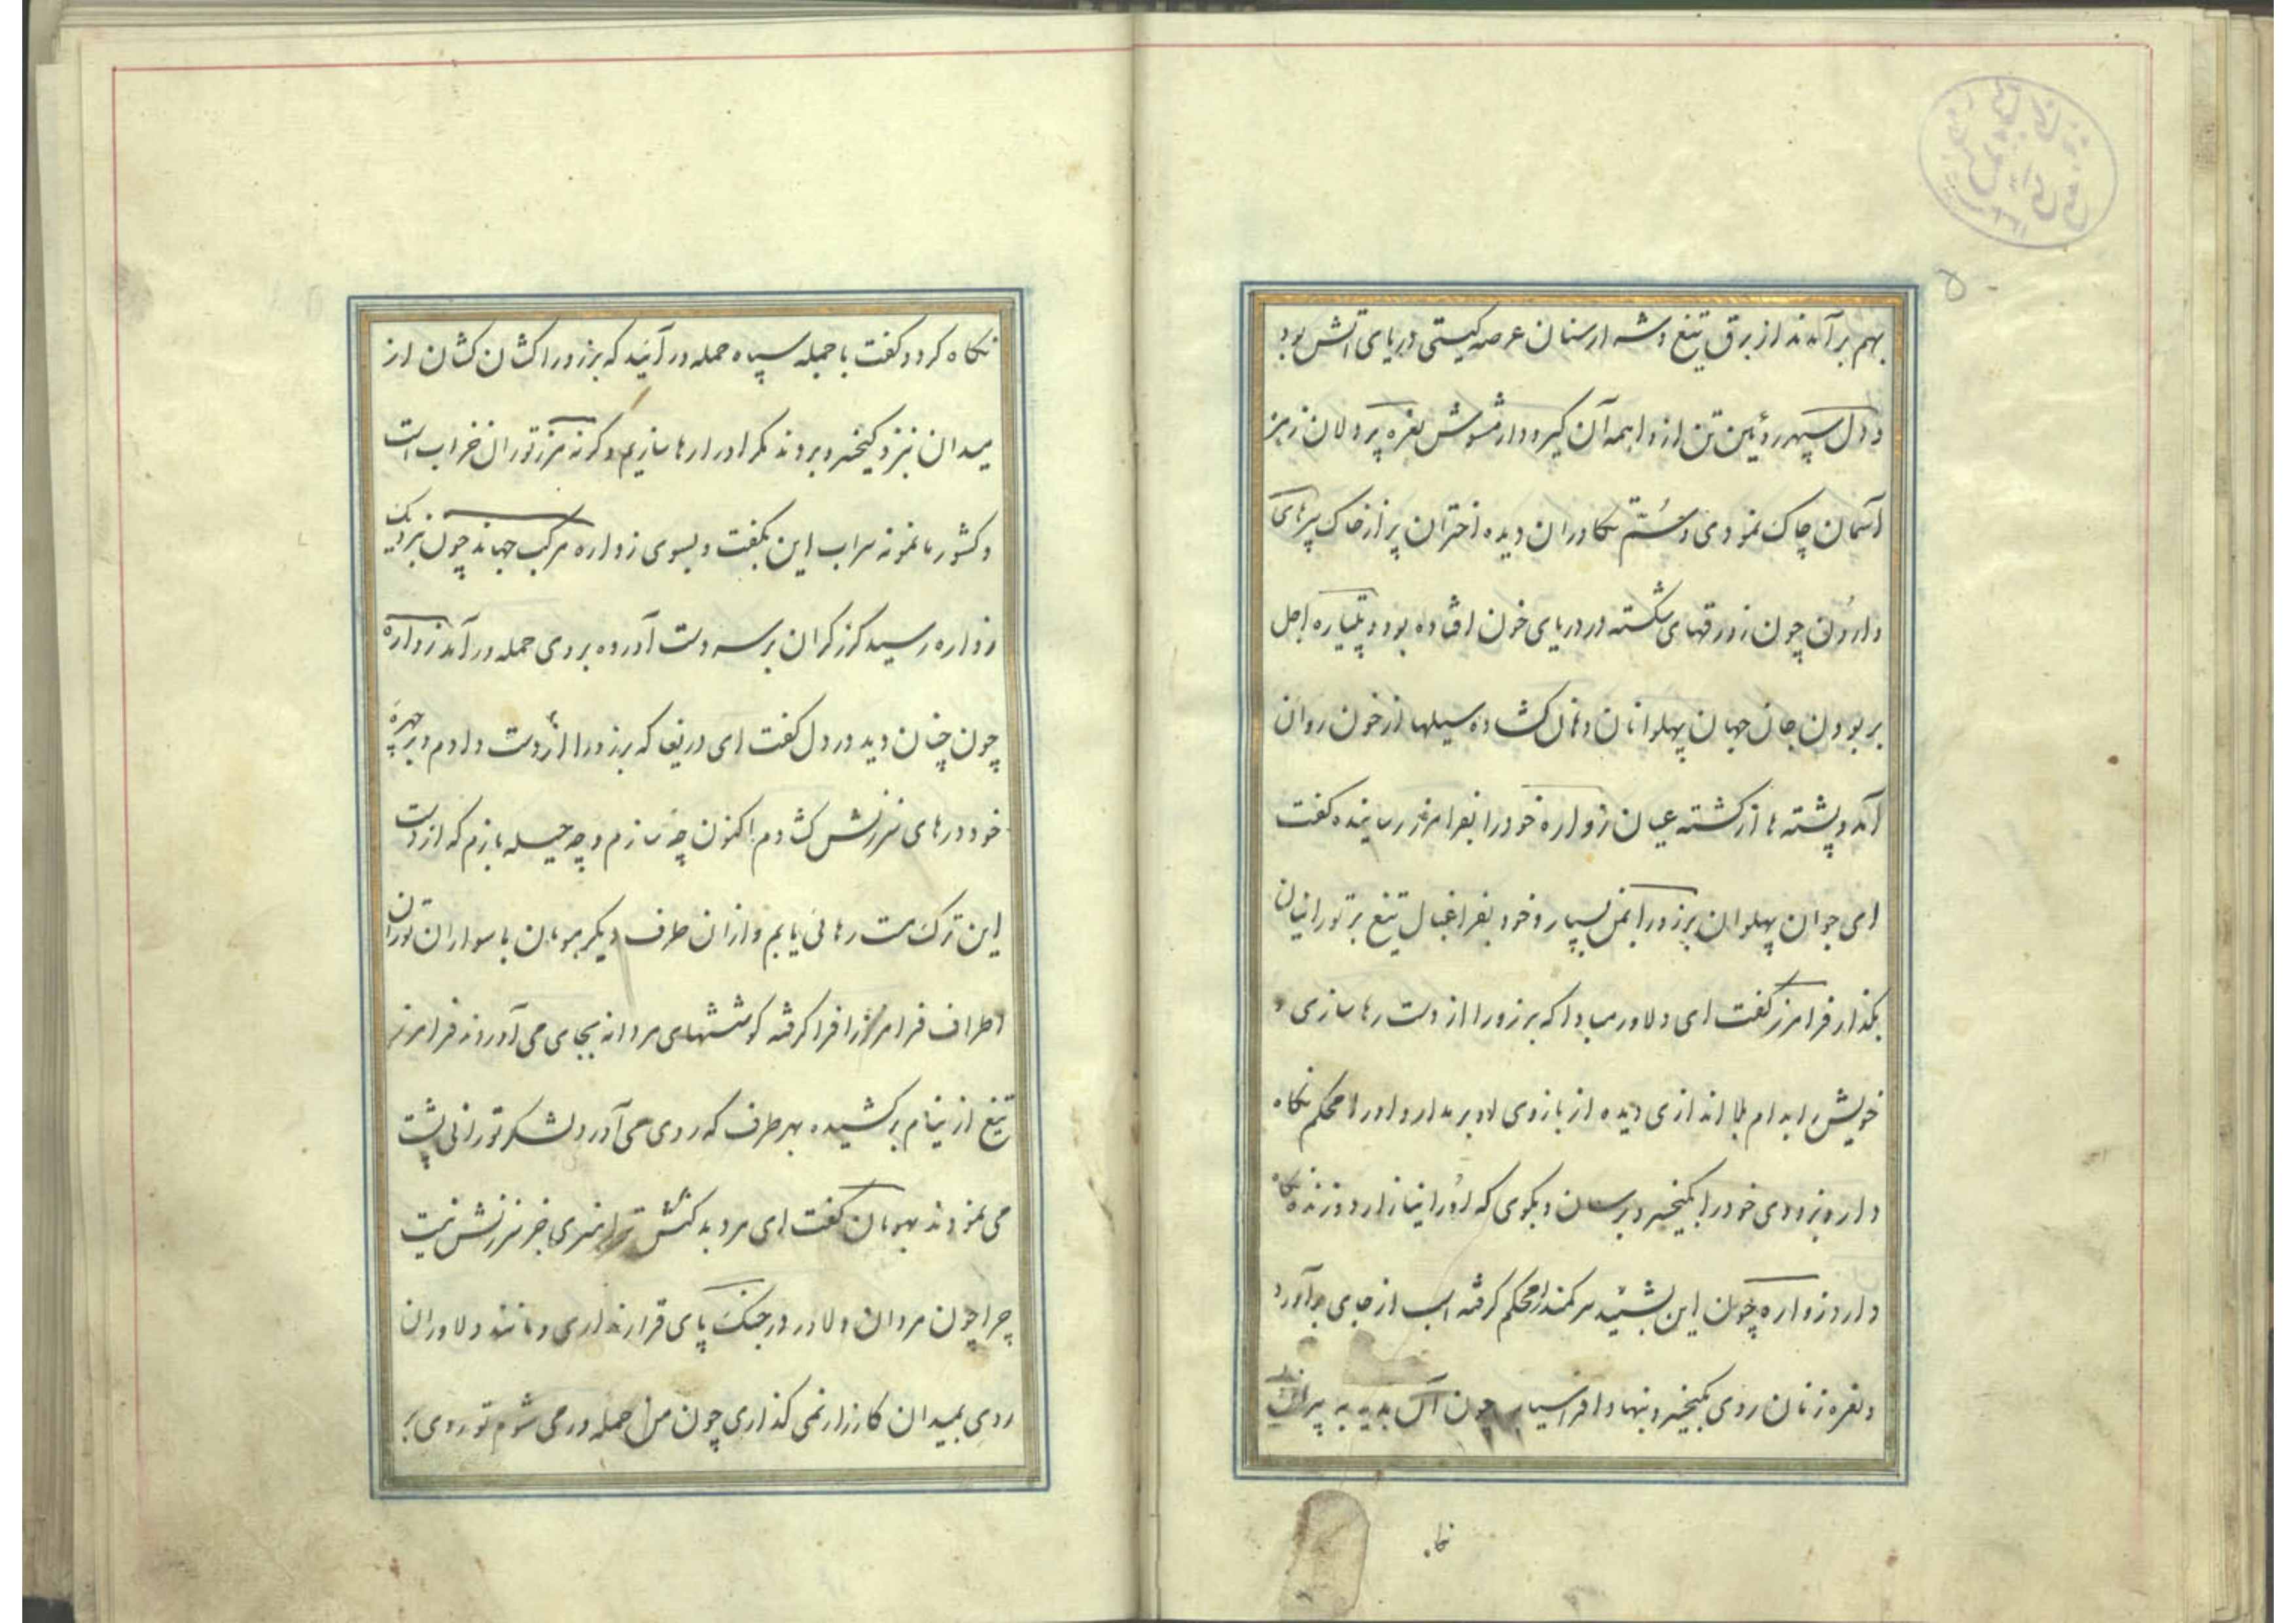 بهم برآمدند از برق تیغ و شراره سنان عرصه کیتی دریای آتش بود
و دل سپهر روئین تن از واهمه آن کیرودار مشوش نعره پردلان زهره
آسمان چاک نمودی و سُمّ تکاوران دیده اختران پر از خاک سپرهای
واژون چون زورقهای شکسته در دریای خون افتاده بود و پتیاره اجل
بربودن جان جهان پهلوانان دهان کشاده سیلها از خون روان
آمد و پشته ها از کشته عیان زواره خود را بفرامرز رسانیده کفت
ای جوان پهلوان برزو را بمن بسپار و خود بفراغبال تیغ بر تورانیان
بکذار فرامرز کفت ای دلاور مبادا که برزو را از دست رها سازی و
خویش را بدام بلا اندازی دیده از بازوی او بر مدار و او را محکم نکاه
دار و بزودی خود را بکیخسرو برسان و بکوی که او را نیازارد و زنده نکاه
دارد زواره چون این بشنید سر کمند را محکم کرفته اسب از جای برآورد
و نعره زنان روی بکیخسرو نهاد افراسیاب چون آن بدید به پیران
نکا.
نکاه کرد و کفت با جمله سپاه حمله در آئید که برزو را کشان کشان از
میدان نزد کیخسرو بردند مکر او را رها سازیم و کرنه مرز توران خراب است
و کشور ما نمونه سراب این بکفت و بسوی زواره مرکب جهاند چون نزدیک
زواره رسید کرز کران بر سر دست آورده بروی حمله در آمد زواره
چون چنان دید در دل کفت ای دریغا که برزو را از دست دادم و بر چهره
خود درهای سرزنش کشادم اکنون چه سازم و چه حیله بازم که از دست
این ترک مست رهائی یابم و ازان طرف دیکر هومان با سواران توران
اطراف فرامرز را فرا کرفته کوششهای مردانه بجای می آوردند فرامرز
تیغ از نیام برکشیده بهر طرف که روی می آورد لشکر تورانی پشت
می نمودند بهومان کفت ای مرد بد کنش ترا هنری جز سرزنش نیست
چرا چون مردان دلاور در جنک پای قرار نداری و مانند دلاوران
روی بمیدان کارزار نمی کذاری چون من حمله ور می شوم تو روی بر